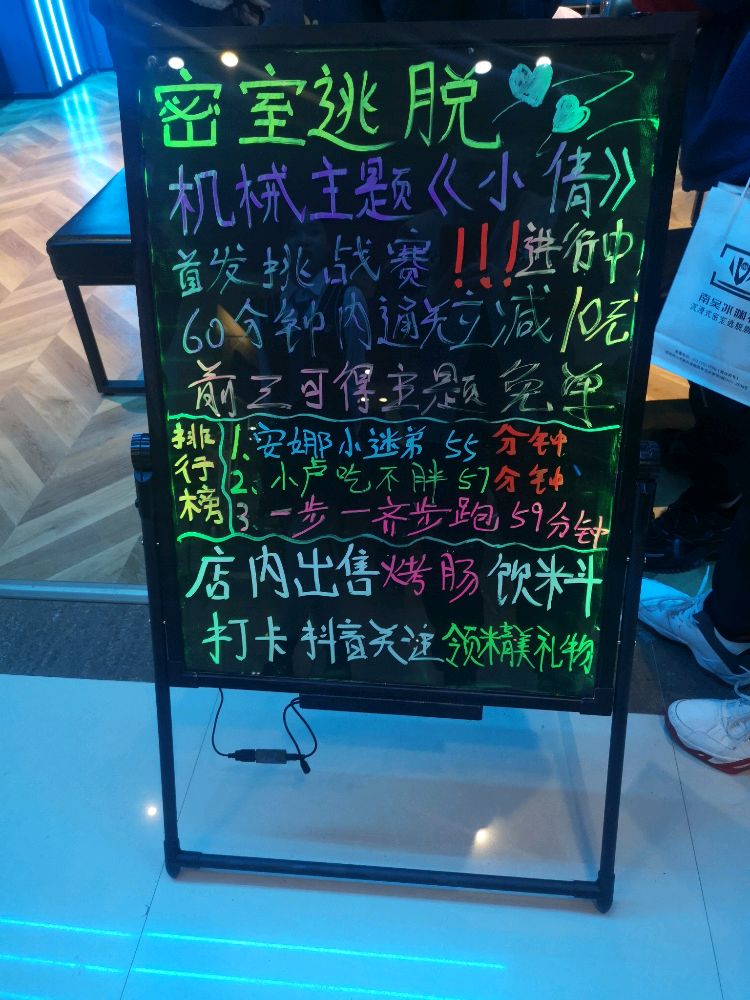 密室逃脱
机械主题《小倩》
首发挑战赛!!!进行中
60分钟内通关立减10元
前三可得主题免单
排行榜
1. 安娜小迷弟 55 分钟
2. 小卢吃不胖 57分钟
3. 一步一齐步跑 59分钟
店内出售烤肠饮料
打卡抖音关注领精美礼物